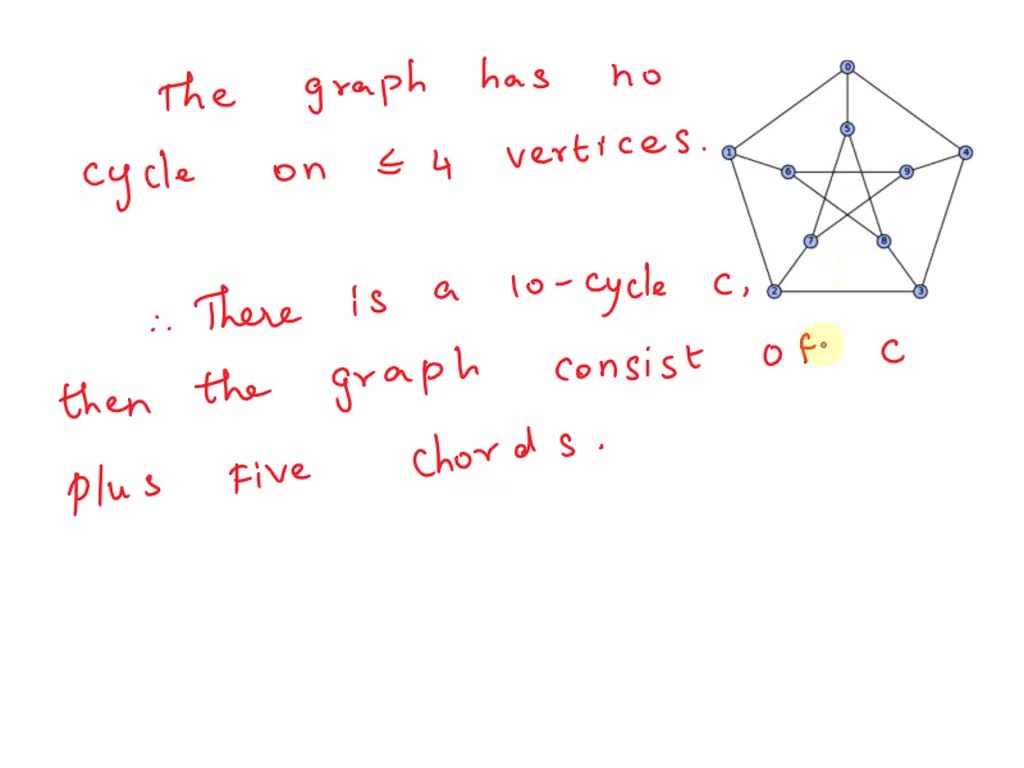 The graph has no
cycle on ≤ 4 vertices.
∴ There is a 10-cycle C,
then the graph consist of C
plus Five chords.
0
5
1
4
6
9
7
8
2
3